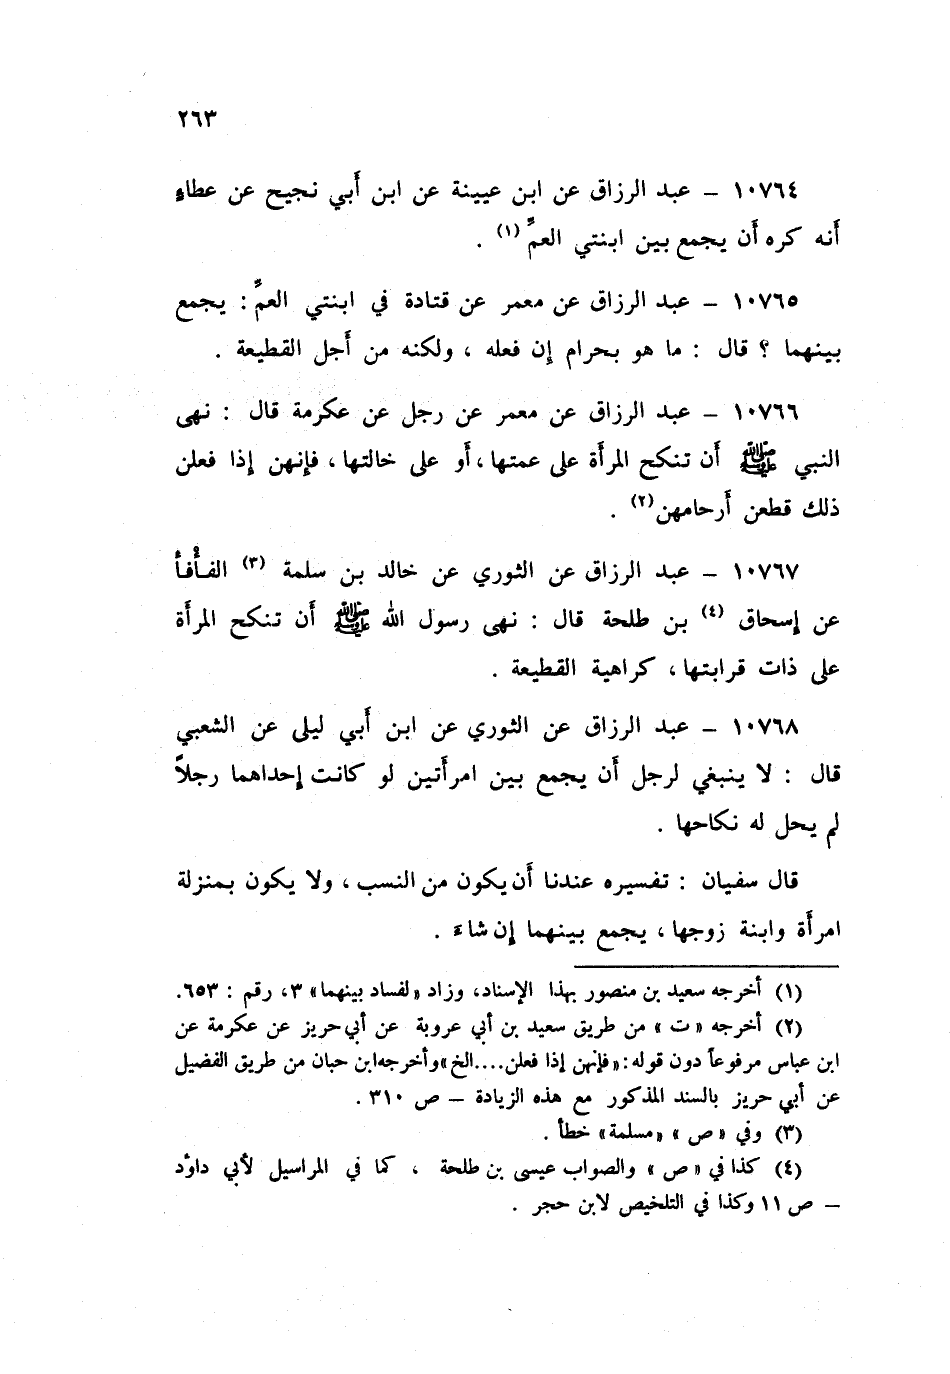 ٢٦٣
١٠٧٦٤ – عبد الرزاق عن ابن عيينة عن ابن أبي نجيح عن عطاءٍ
أنه كره أن يجمع بين ابنتي العمِّ (١) .
١٠٧٦٥ – عبد الرزاق عن معمر عن قتادة في ابنتي العمِّ : يجمع
بينهما ؟ قال : ما هو بحرام إن فعله ، ولكنه من أجل القطيعة .
١٠٧٦٦ – عبد الرزاق عن معمر عن رجل عن عكرمة قال : نهى
النبي ﷺ أن تنكح المرأة على عمتها ، أو على خالتها ، فإنهن إذا فعلن
ذلك قطعن أرحامهن (٢) .
١٠٧٦٧ – عبد الرزاق عن الثوري عن خالد بن سلمة (٣) الفأْفأ
عن إسحاق (٤) بن طلحة قال : نهى رسول الله ﷺ أن تنكح المرأة
على ذات قرابتها ، كراهية القطيعة .
١٠٧٦٨ – عبد الرزاق عن الثوري عن ابن أبي ليلى عن الشعبي
قال : لا ينبغي لرجل أن يجمع بين امرأتين لو كانت إحداهما رجلاً
لم يحل له نكاحها .
قال سفيان : تفسيره عندنا أن يكون من النسب ، ولا يكون بمنزلة
امرأة وابنة زوجها ، يجمع بينهما إن شاءَ .
(١) أخرجه سعيد بن منصور بهذا الإسناد، وزاد «لفساد بينهما» ٣، رقم : ٦٥٣.
(٢) أخرجه «ت» من طريق سعيد بن أبي عروبة عن أبي حريز عن عكرمة عن
ابن عباس مرفوعاً دون قوله : «فإنهن إذا فعلن....الخ» وأخرجه ابن حبان من طريق الفضيل
عن أبي حريز بالسند المذكور مع هذه الزيادة – ص ٣١٠ .
(٣) وفي «ص» «مسلمة» خطأ .
(٤) كذا في «ص» والصواب عيسى بن طلحة ، كما في المراسيل لأبي داوُد
– ص ١١ وكذا في التلخيص لابن حجر .